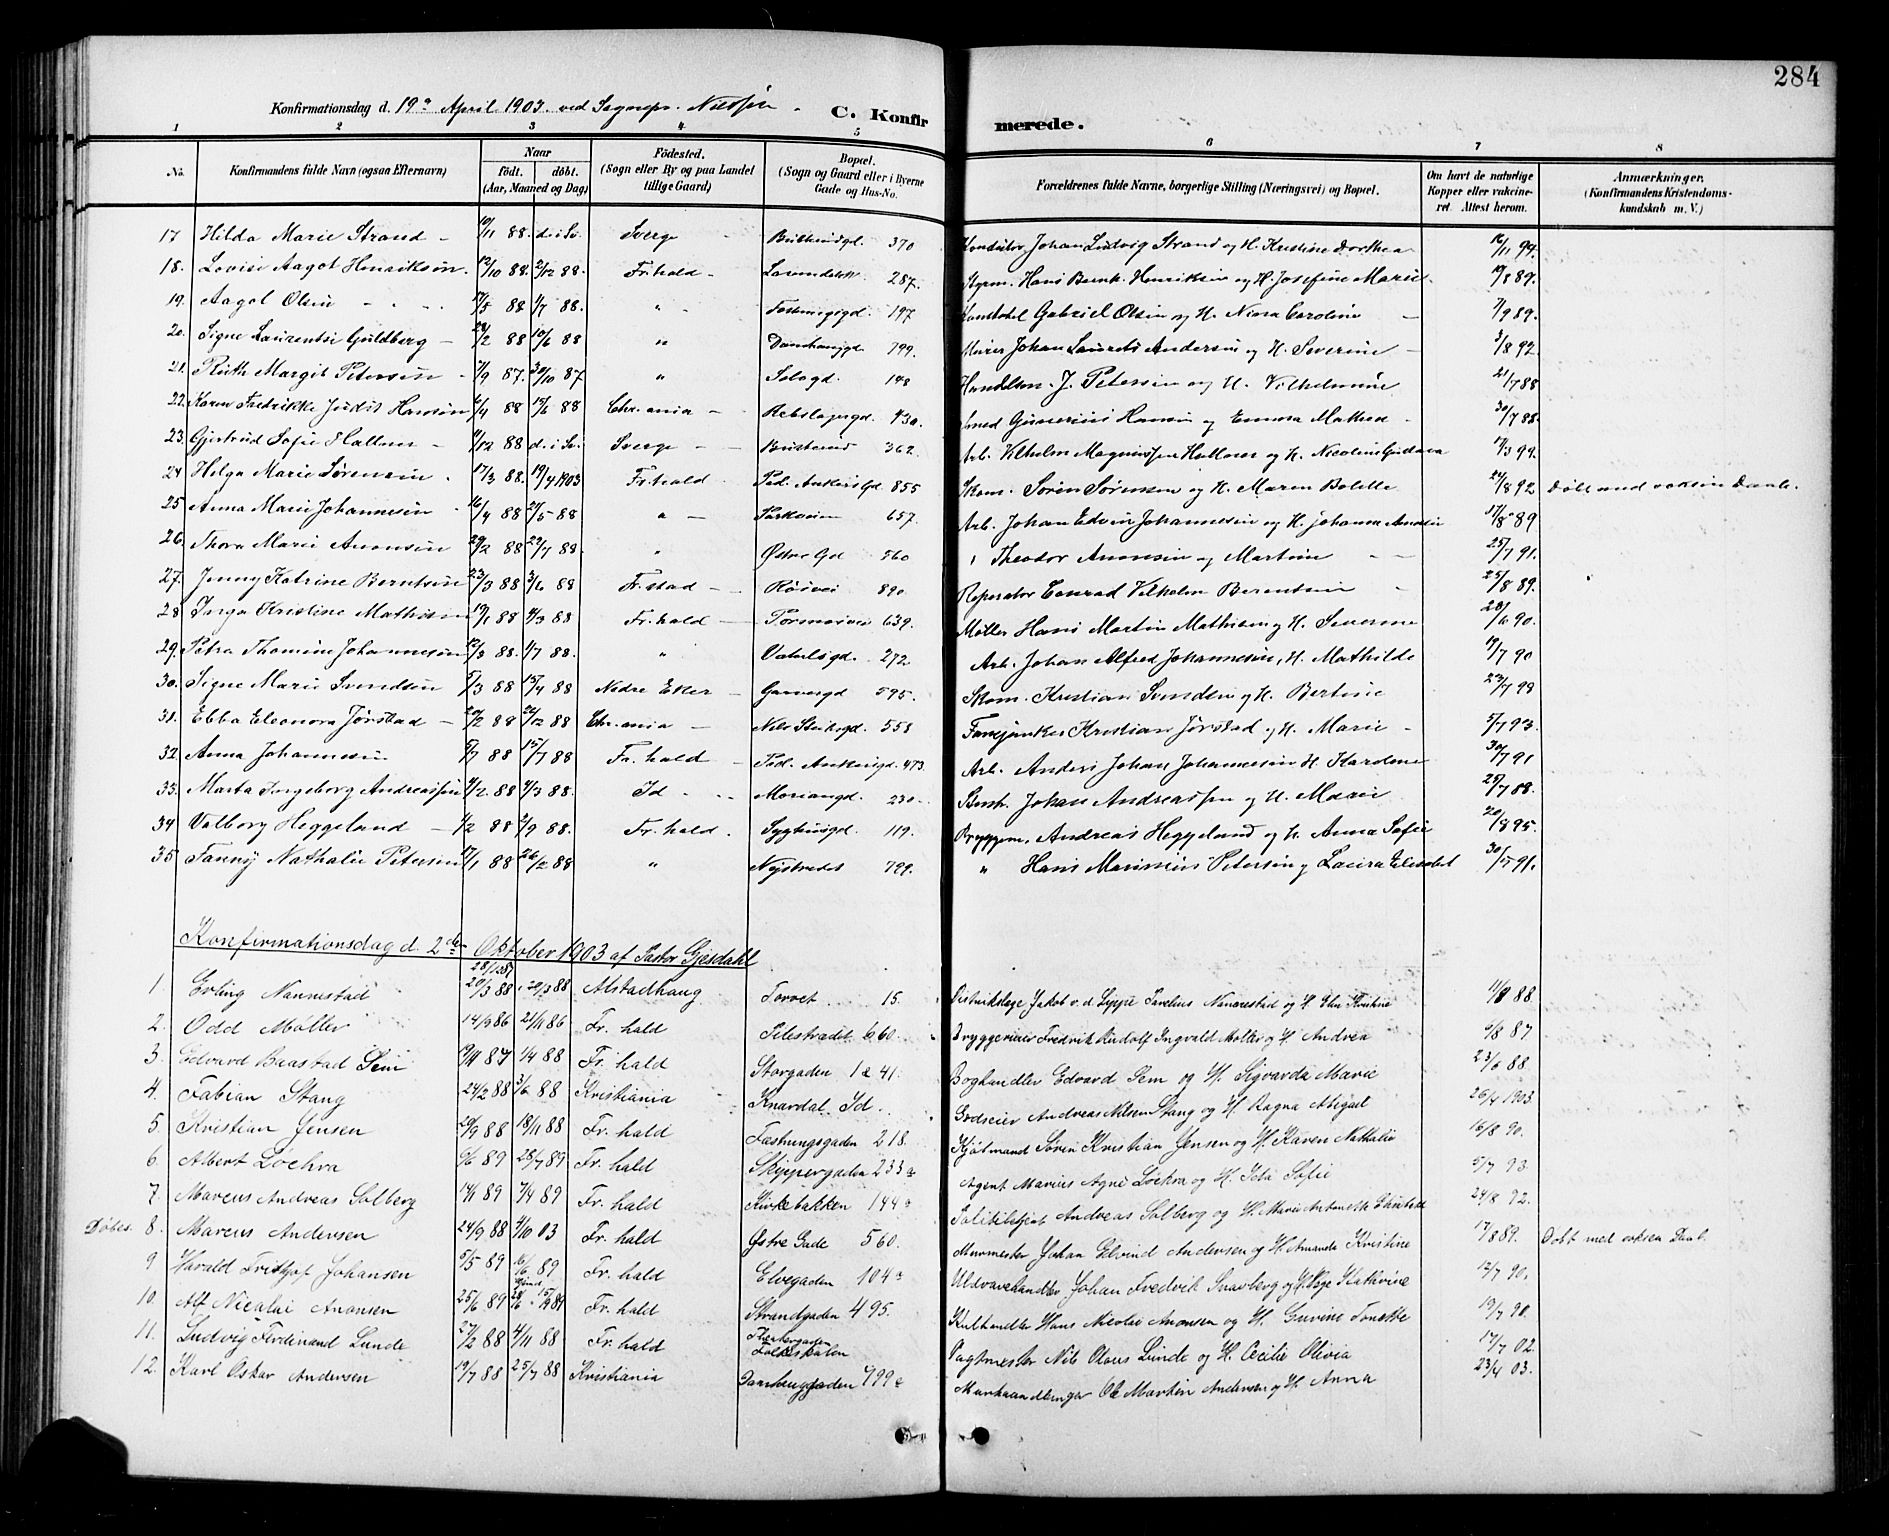 284
Konfirmationsdag d. 19de April 1903 ved Sognepr. C. Konfirmerede.
1 2 3 4 5 6 7 8
No. Konfirmandens fulde Navn (ogsaa Efternavn) Naar født. døbt. (Aar, Maaned og Dag) Fødested. (Sogn eller By og paa Landet tillige Gaard) Bopæl. (Sogn og Gaard eller i Byerne Gade og Hus-No. Forældrenes fulde Navne, borgerlige Stilling (Næringsvei) og Bopæl. Om havt de naturlige Kopper eller vakcineret. Attest herom. Anmærkninger. (Konfirmandens Kristendomskundskab m. V.)
17 Hilda Marie Strand 10/11 88. d. i Sv. Sverge 370 Konduktør Johan Ludvig Strand og H. Kristine Dorthea 16/11 94.
18. Lovise Aagot Henriksen 12/10 88. 2/12 88. Fr.hald 287. Styrm. Hans Bernh. Henriksen og H. Josefine Marie 19/8 89.
19. Aagot Olsen 17/5 88 1/7 88. " 197 Gabriel Olsen og H. Nina Caroline 7/9 89.
20. Signe Laurentse Guldberg 28/2 88 10/6 88 " Danshaugd. 799. Murer Johan Laurits Andersen og H. Severine 3/8 92.
21. Ruth Margit Petersen 2/9 87. 30/10 87 " 148 Handelsm. J. Petersen og H. Vilhelmine 21/7 88
22. Karen Fredrikke Judit Hansen 6/4 88 15/6 88 Chr.ania Rebslagergd. 430. Smed Hansen og Emma Mathea 30/7 88.
23. Gjertrud Sofie Hallum 9/12 88 d. i Sv. Sverge 362 Arb. Vilhelm Magnussen og H. Nicoline Gustava 17/3 99.
24 Helga Marie Sørensen 17/3 88. 19/4 1903 Fr.hald Ped. Ankersgd. 855 Skom. Søren Sørensen og H. Maren Bolette 24/8 92 Døbt med voksen Daab.
25 Anna Marie Johannesen 16/4 88 27/5 88 " Parkveien 657. Arb. Johan Edvin Johannesen og H. Johanne 17/8 89
26. Thora Marie Aronsen 29/2 88 22/7 88. " Østre Gd 560 " Theodor Aronsen og Martine 25/7 91.
27. Jenny Katrine Berntsen 23/3 88 3/6 88 Fr.stad Røsvei 890 Reperatør Conrad Vilhelm Berentsen 25/8 89.
28 Inga Kristine Mathisen 19/1 88 4/3 88 Fr.hald 639. Møller Hans Martin Mathisen og H. Severine 28/6 90.
29. Petra Thomine Johannesen 12/3 88. 1/7 88. " Vaterlsgd. 272. Arb. Johan Alfred Johannesen, H. Mathilde 19/7 90
30. Signe Marie Svendsen 5/3 88 15/4 88 Nedre Eker 595. Skom. Kristian Svendsen og H. Bertine 23/7 98
31. Ebba Eleonora Jørstad 20/2 88 26/12 88 Chr.ania Nils Stubsgd. 558 Fanejunker Kristian Jørstad og H. Marie 5/7 93.
32. Anna Johannesen 5/7 88 15/7 88 Fr.hald Ped. Ankersgd. 473. Arb. Anders Johan Johannesen H. Kardine 30/7 91
33. Marta Ingeborg Andreassen 4/2 88 4/3 88. Id Mariangd. 230 Johan Andreassen og H. Marie 25/7 88.
34 Valborg Heggelund 1/2 88 2/9 88. Fr.hald. Syghusgd. 119. Bryggem. Andreas Heggelund og H. Anna Sofie 20/8 95.
35 Fanny Nathalie Petersen 17/1 88 26/2 88 " Nystrædet 729. " Hans Marinius Petersen og Laura Elisabet 30/5 91.
Konfirmationsdag d. 2den Oktober 1903 af Pastor Gjesdahl
1. Erling Nannestad 20/3 88 Alstadhaug Torvet 15. Distriktslæge Jakob v. d. Lippe Nannestad og H. Kristine 11/8 88
2. Odd Møller 14/9 86 21/11 86 Fr. hald Pilestrædet 660. Bryggerieier Fredrik Rudolf Ingvald Møller og H. Andrea 6/8 87
3. Edvard Baastad Sem 19/11 87 1/4 88 Fr. hald Storgaden 1 a 41. Boghandler Edvard Sem og H. Sigvarda Marie 23/6 88
4. Fabian Stang 24/2 88 3/6 88 Kristiania Knardal Id. Godseier Andreas Nilsen Stang og H. Ragna Abigael 26/4 1903.
5. Kristian Jensen 20/9 88 18/11 88 Fr. hald Fæstningsgaden 218. Kjøbmand Søren Kristian Jensen og H. Karen Nathalie 16/8 90.
6. Albert Løchra 6/6 89 28/7 89 Fr. hald Skippergaden 233 a Agent Marius Løchra og H. Ida Sofie 5/7 93.
7. Marcus Andreas Solberg 14/1 89 7/4 89 Fr. hald Kirkebakken 144 a Politibetjent Andreas Solberg og H. Marie Antonette 24/8 92.
Døbes. 8. Marcus Andersen 24/9 88 4/10 03 Fr. hald Østre Gade 560. Murmester Johan Edvind Andersen og H. Amanda Kristine 17/8 89. Døbt med voksen Daab.
9 Harald Fritjof Johansen 5/5 89 16/6 89 Fr. hald Elvegaden 104 a Uldvarehandler Johan Fredrik Svarberg og H. Kathrine 12/7 90.
10. Alf Nicolai Aronsen 25/6 89 Fr. hald Strandgaden 495. Kulhandler Hans Nicolai Aronsen og H. Gurine Tonette 19/7 90.
11. Ludvig Ferdinand Lunde 27/2 88 4/11 88 Fr. hald Folkeskolen Vagtmester Nils Olaus Lunde og H. Cecilie Olivia 17/7 02.
12. Karl Oskar Andersen 19/7 88 25/7 88 Kristiania Danshauggaden 799 a Ole Martin Andersen og H. Anna 23/4 03.